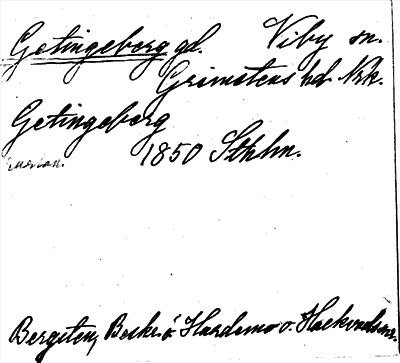 Getingeberg gd. Viby sn.
Grimstens hd Nrk.
Getingeberg
1850 Sthlm.
Bergsten, Beskr. ö. Hardemo o. Hackvads snr.